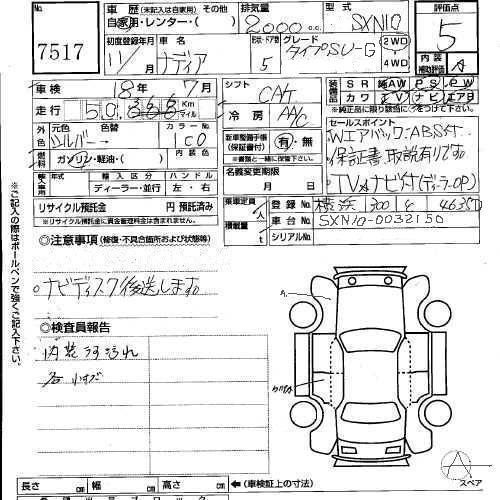 7517
車歴(未記入は自家用) その他
自家用・レンター・( )
排気量
2000 cc
型式
SXN10
初度登録年月
11/ 月
車名
ナディア
形状・ドア数
5
グレード
タイプSU-G
2WD
4WD
5
内装
補助評価 A
車検 18年 7月
シフト CAT
装備品 SR 純AW PS PW
カワ 純TV ナビ エアB
走行 50,888 Km マイル
冷房 AAC
▲純正品に限り該当個所に○をつけて下さい
外色 元色 シルバー 色替 →
カラーNo. 1C0
内装色
新車整備手帳(保証書付) 有・無
※書類と一緒に後送して下さい
セールスポイント
Wエアバック・ABS付
保証書取説有りです
TV&ナビ付(ディーラーOP)
燃料 ガソリン・軽油・( )
輸入車用 輸入区分 ハンドル
ディーラー・並行 左・右
名義変更期限
月 日
リサイクル預託金 円 預託済み
※リサイクル預託金に資金管理料金は含まず
乗車定員 人
積載量 t
登録No. 横浜 300
車台No. SXN10-0032150
シリアルNo.
◎注意事項(修復・不具合箇所および状態等)
○ナビディスク後送します。
◎検査員報告
内装汚れ
各小キズ
※ご記入の際はボールペンで強くご記入下さい。
A
スペア
長さ cm 幅 cm 高さ cm ←(車検証上の寸法)